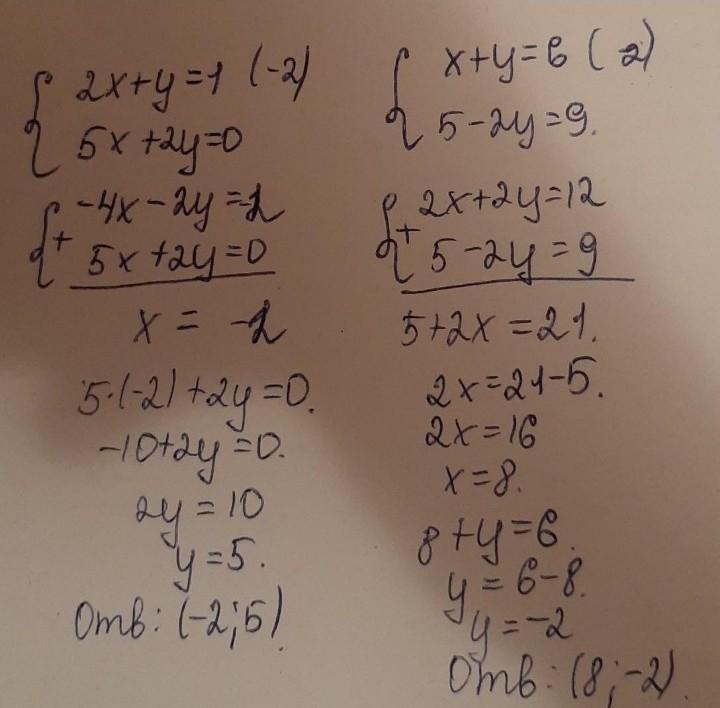 2x+y=1 (-2)
5x+2y=0
-4x-2y=-2
+ 5x+2y=0
x = -2
5·(-2)+2y=0.
-10+2y=0.
2y=10
y=5.
Отв: (-2;5)
x+y=6 (2)
5-2y=9.
2x+2y=12
+ 5-2y=9
5+2x=21.
2x=21-5.
2x=16
x=8.
8+y=6.
y=6-8.
y=-2
Отв: (8;-2).